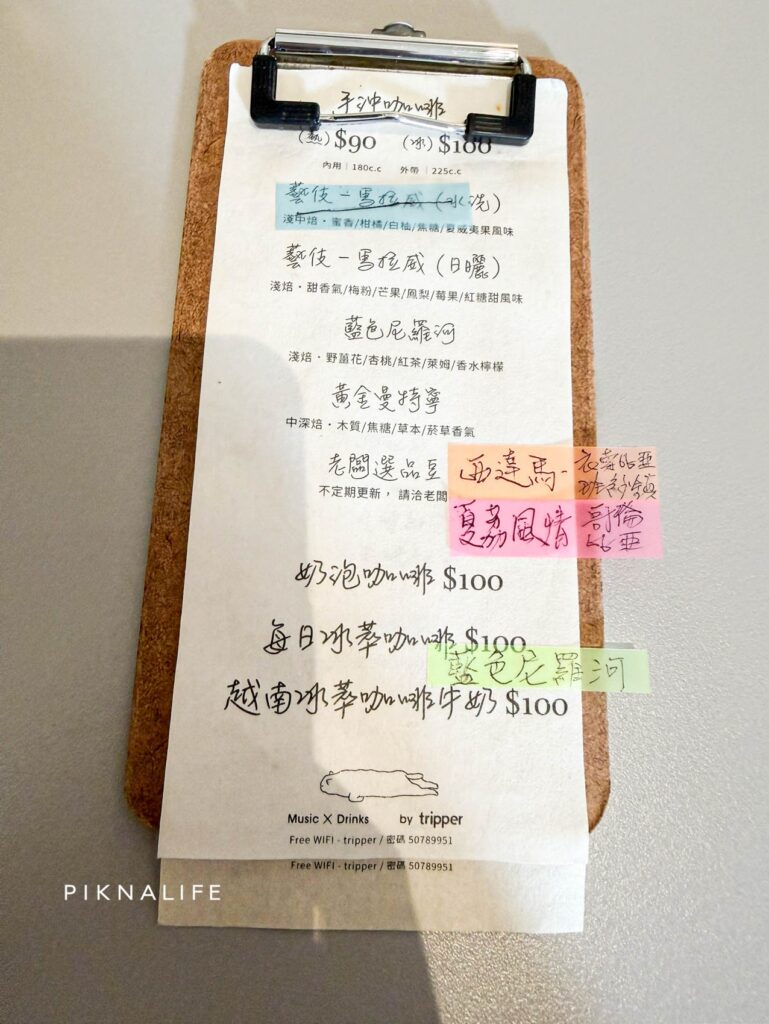 手沖咖啡
(熱) $90 (冰) $100
內用 | 180c.c 外帶 | 225c.c
藝伎－馬拉威(水洗)
淺中焙・蜜香/柑橘/白柚/焦糖/夏威夷果風味
藝伎－馬拉威(日曬)
淺焙・甜香氣/梅粉/芒果/鳳梨/莓果/紅糖甜風味
藍色尼羅河
淺焙・野薑花/杏桃/紅茶/萊姆/香水檸檬
黃金曼特寧
中深焙・木質/焦糖/草本/菸草香氣
老闆選品豆
不定期更新，請洽老闆
西達馬-
衣索比亞
班莎鎮
夏荔風情
哥倫
比亞
奶泡咖啡 $100
每日冰萃咖啡 $100
藍色尼羅河
越南冰萃咖啡牛奶 $100
Music X Drinks by tripper
Free WIFI - tripper / 密碼 50789951
Free WIFI - tripper / 密碼 50789951
PIKNALIFE